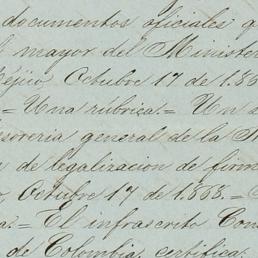 documentos oficiales q
l mayor del Minister
Méjico, Octubre 17 de 186
= Una rúbrica.= Un s
sorería general de la N
de legalizacion de firm
o, Octubre 17 de 1868.=
a.= El infrascrito Con
de Colombia, certifica: